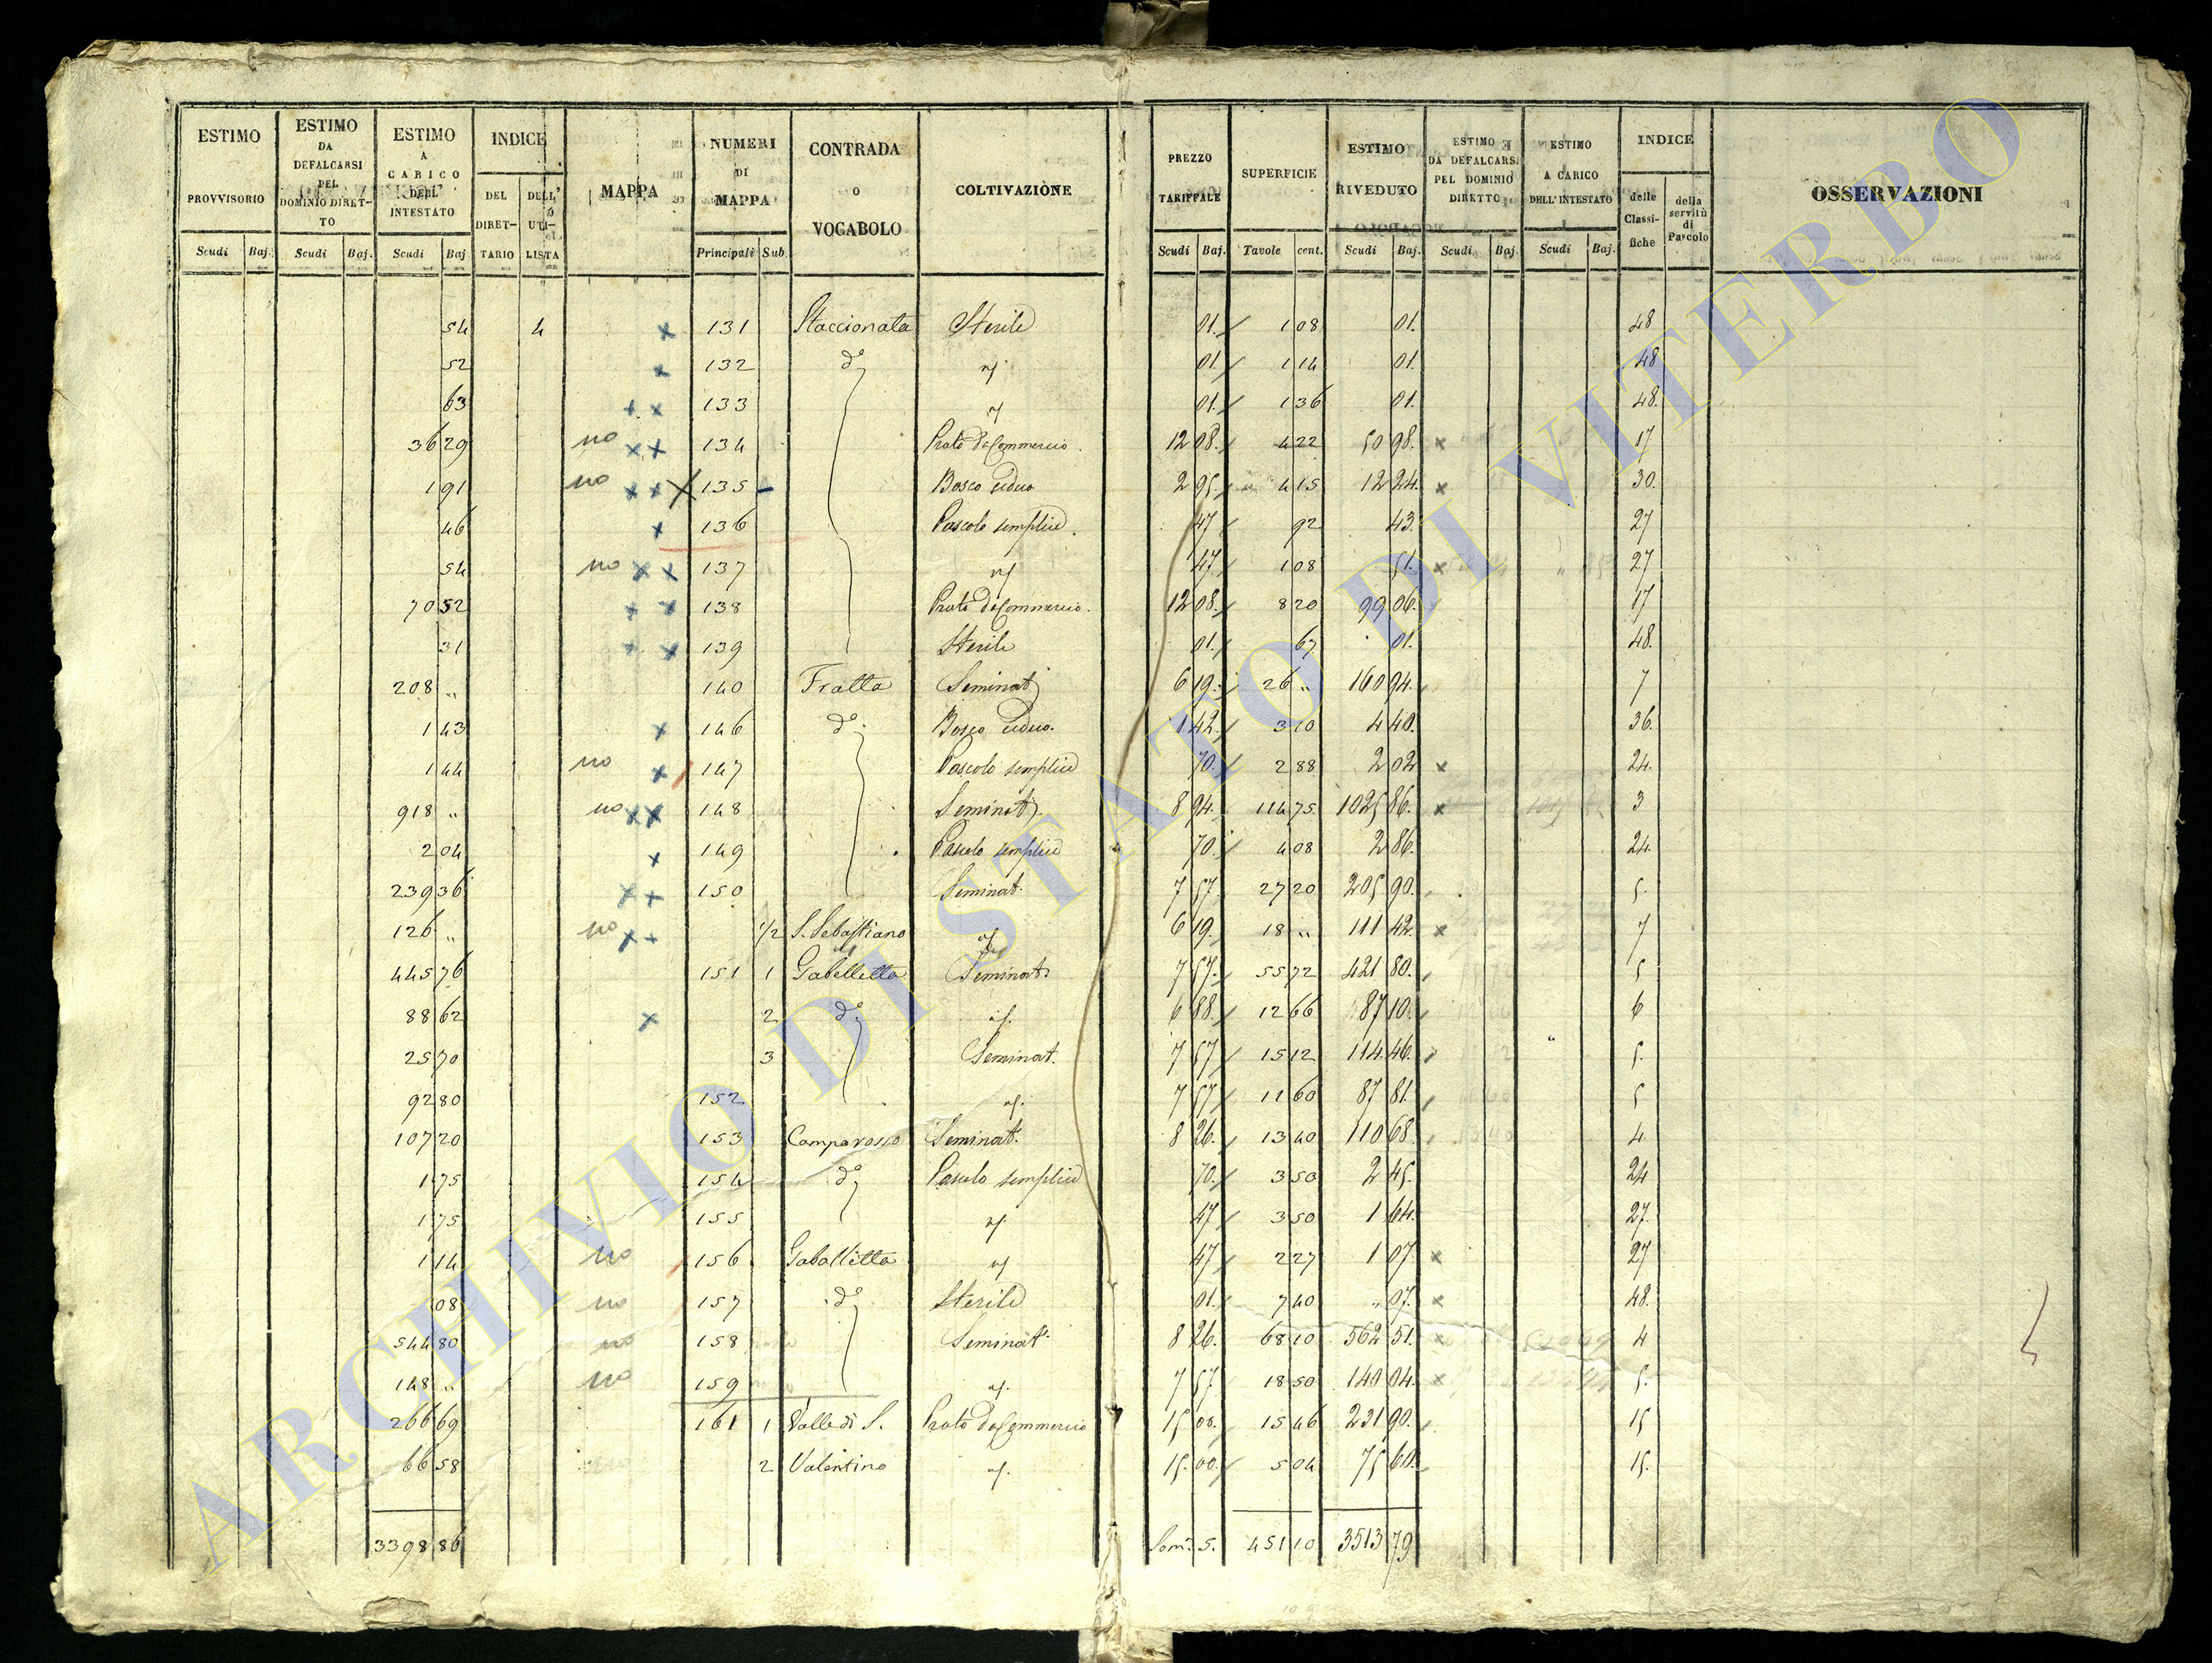 ESTIMO PROVVISORIO Scudi Baj.
ESTIMO DA DEFALCARSI PEL DOMINIO DIRETTO Scudi Baj.
ESTIMO A CARICO DELL' INTESTATO Scudi Baj
INDICE DEL DIRETTARIO DELL' UTILISTA
MAPPA
NUMERI DI MAPPA Principali Sub.
CONTRADA O VOCABOLO
COLTIVAZIONE
PREZZO TARIFFALE Scudi Baj.
SUPERFICIE Tavole cent.
ESTIMO RIVEDUTO Scudi Baj.
ESTIMO DA DEFALCARSI PEL DOMINIO DIRETTO Scudi Baj.
ESTIMO A CARICO DELL' INTESTATO Scudi Baj.
INDICE delle Classifiche della servitù di Pascolo
OSSERVAZIONI
54 4 x 131 Staccionata Sterile 01. 1 08 01. 48
52 x 132 d° 01. 1 14 01. 48
63 x x 133 01. 1 36 01. 48.
36 29 no x x 134 Prato da Commercio 12 08. 4 22 50 98. x 17
1 91 no x x X 135 Bosco ceduo 2 95. 4 15 12 24. x 30.
46 x 136 Pascolo semplice 47 92 43. 27
54 no x x 137 47. 1 08 51. x 27
70 52 x x 138 Prato da Commercio. 12 08. 8 20 99 06. 17
31 x x 139 Sterile 01. 67 01. 48.
208 " 140 Fratta Seminat° 6 19. 26 " 160 94. 7
1 43 x 146 d° Bosco ceduo. 1 42. 3 10 4 40. 36.
1 44 no x 147 Pascolo semplice 70. 2 88 2 02 x 24.
918 " no x x 148 Seminat° 8 94. 114 75. 1025 86. x 3
2 04 x 149 Pascolo semplice 70. 4 08 2 86. 24.
239 36 x x 150 Seminat. 7 57. 27 20 205 90. 5.
126 " no x x 1/2 S. Sebastiano 6 19. 18 " 111 42. x 7
445 76 151 1 Gabelletta Seminat° 7 57. 55 72 421 80. 5
88 62 x 2 d° 6 88. 12 66 87 10. 6
25 70 3 Seminat. 7 57 15 12 114 46. 5.
92 80 152 7 57 11 60 87 81. 5
107 20 153 Camporosso Seminat. 8 26. 13 40 110 68. 4.
1 75 154 d° Pascolo semplice 70. 3 50 2 45. 24
1 75 155 47 3 50 1 64. 27.
1 14 no 156 Gaballetta 47 2 27 1 07. x 27
08 no 157 d° Sterile 01. 7 40 " 07. x 48.
544 80 no 158 Seminat° 8 26. 68 10 562 51. x 4
148 " no 159 7 57. 18 50 140 04. x 5.
266 69 161 1 Valle di S. Prato da Commercio 15 00. 15 46 231 90. 15
66 58 2 Valentino 15. 00. 5 04 75 60. 15.
3398 86 Som.ª S. 451 10 3513 79
ARCHIVIO DI STATO DI VITERBO